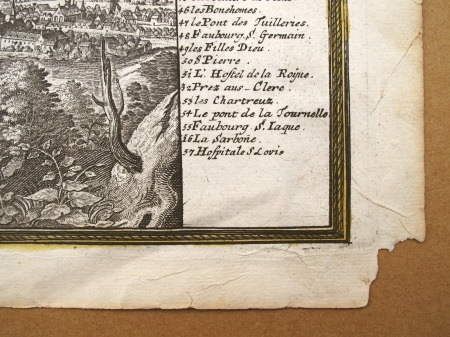 46 les Bonshomes.
47 le Pont des Tuilleries.
48 Faubourg St. Germain.
49 les Filles Dieu.
50 S. Pierre.
51 L'Hostel de la Royne.
52 Prez aus-Clerc.
53 les Chartreux
54 Le pont de la Tournelle.
55 Faubourg. St. Iaque.
56 La Sarbone.
57 Hospitale S Lovis